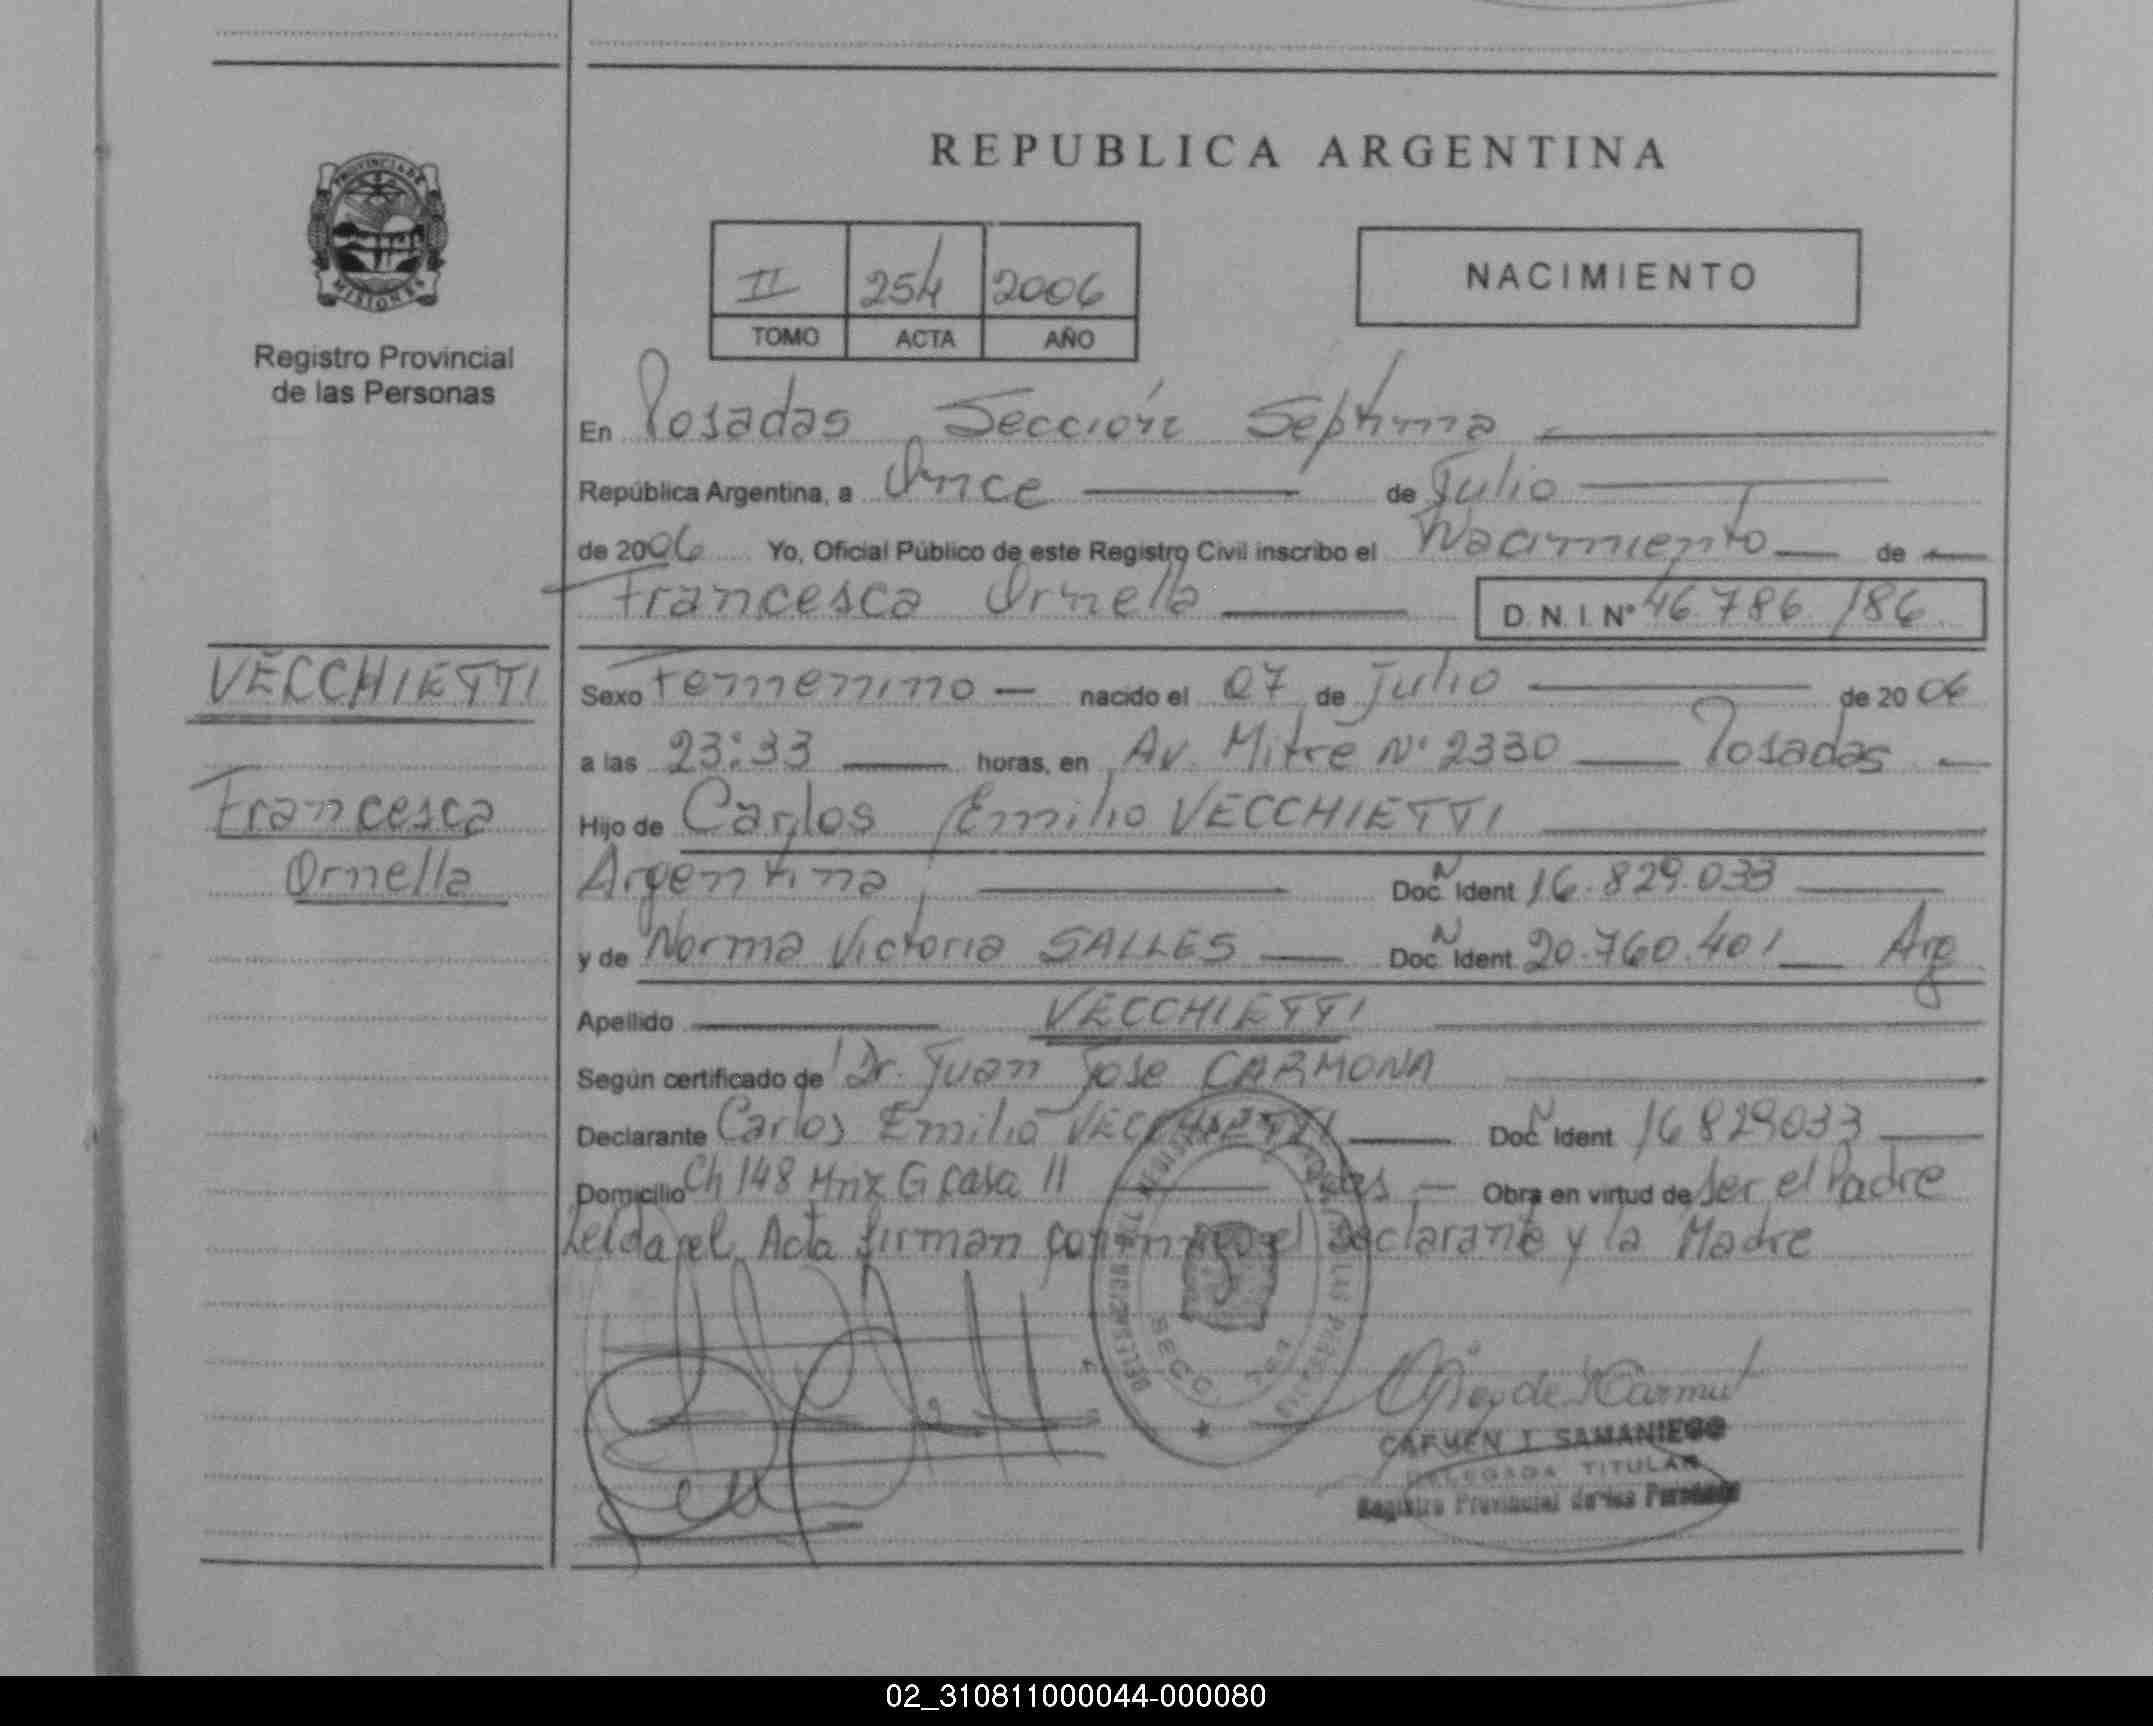 REPUBLICA ARGENTINA
PROVINCIA DE
MISIONES
Registro Provincial
de las Personas
II 254 2006
TOMO ACTA AÑO
NACIMIENTO
En Posadas Sección Séptima
República Argentina, a Once de Julio
de 2006 Yo, Oficial Público de este Registro Civil inscribo el Nacimiento de
Francesca Ornella D.N.I. Nº 46.786.186
VECCHIETTI
Francesca
Ornella
Sexo Femenino nacido el 07 de Julio de 2006
a las 23:33 horas, en Av. Mitre Nº 2330 Posadas
Hijo de Carlos Emilio VECCHIETTI
Argentina Doc. Ident 16.829.033
y de Norma Victoria SALLES Doc. Ident. 20.760.401 Arg
Apellido VECCHIETTI
Según certificado de Dr. Juan Jose CARMONA
Declarante Carlos Emilio VECCHIETTI Doc. Ident 16829033
Domicilio Ch 148 Mnz G Casa 11 Obra en virtud de Ser el Padre
Leida el Acta firman conmigo el Declarante y la Madre
CARMEN I. SAMANIEGO
DELEGADA TITULAR
Registro Provincial de las Personas
02_310811000044-000080